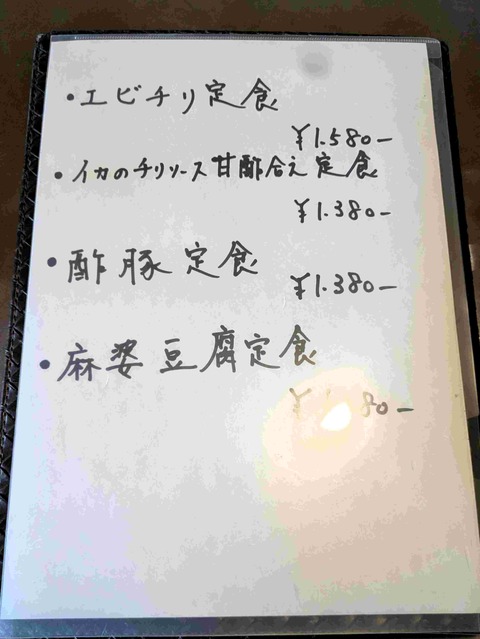 ・エビチリ定食
¥1.580-
・イカのチリソース甘酢合え定食
¥1.380-
・酢豚定食
¥1.380-
・麻婆豆腐定食